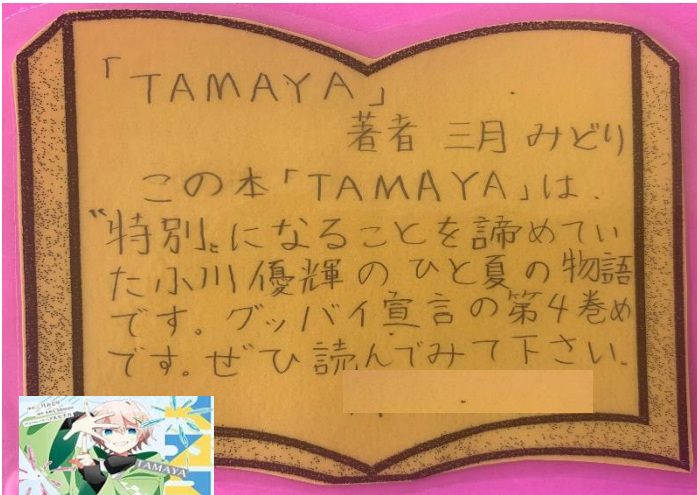 「TAMAYA」
著者 三月 みどり
この本「TAMAYA」は、
〝特別〟になることを諦めてい
た小川優輝のひと夏の物語
です。グッバイ宣言の第4巻め
です。ぜひ読んでみて下さい。
TAMAYA